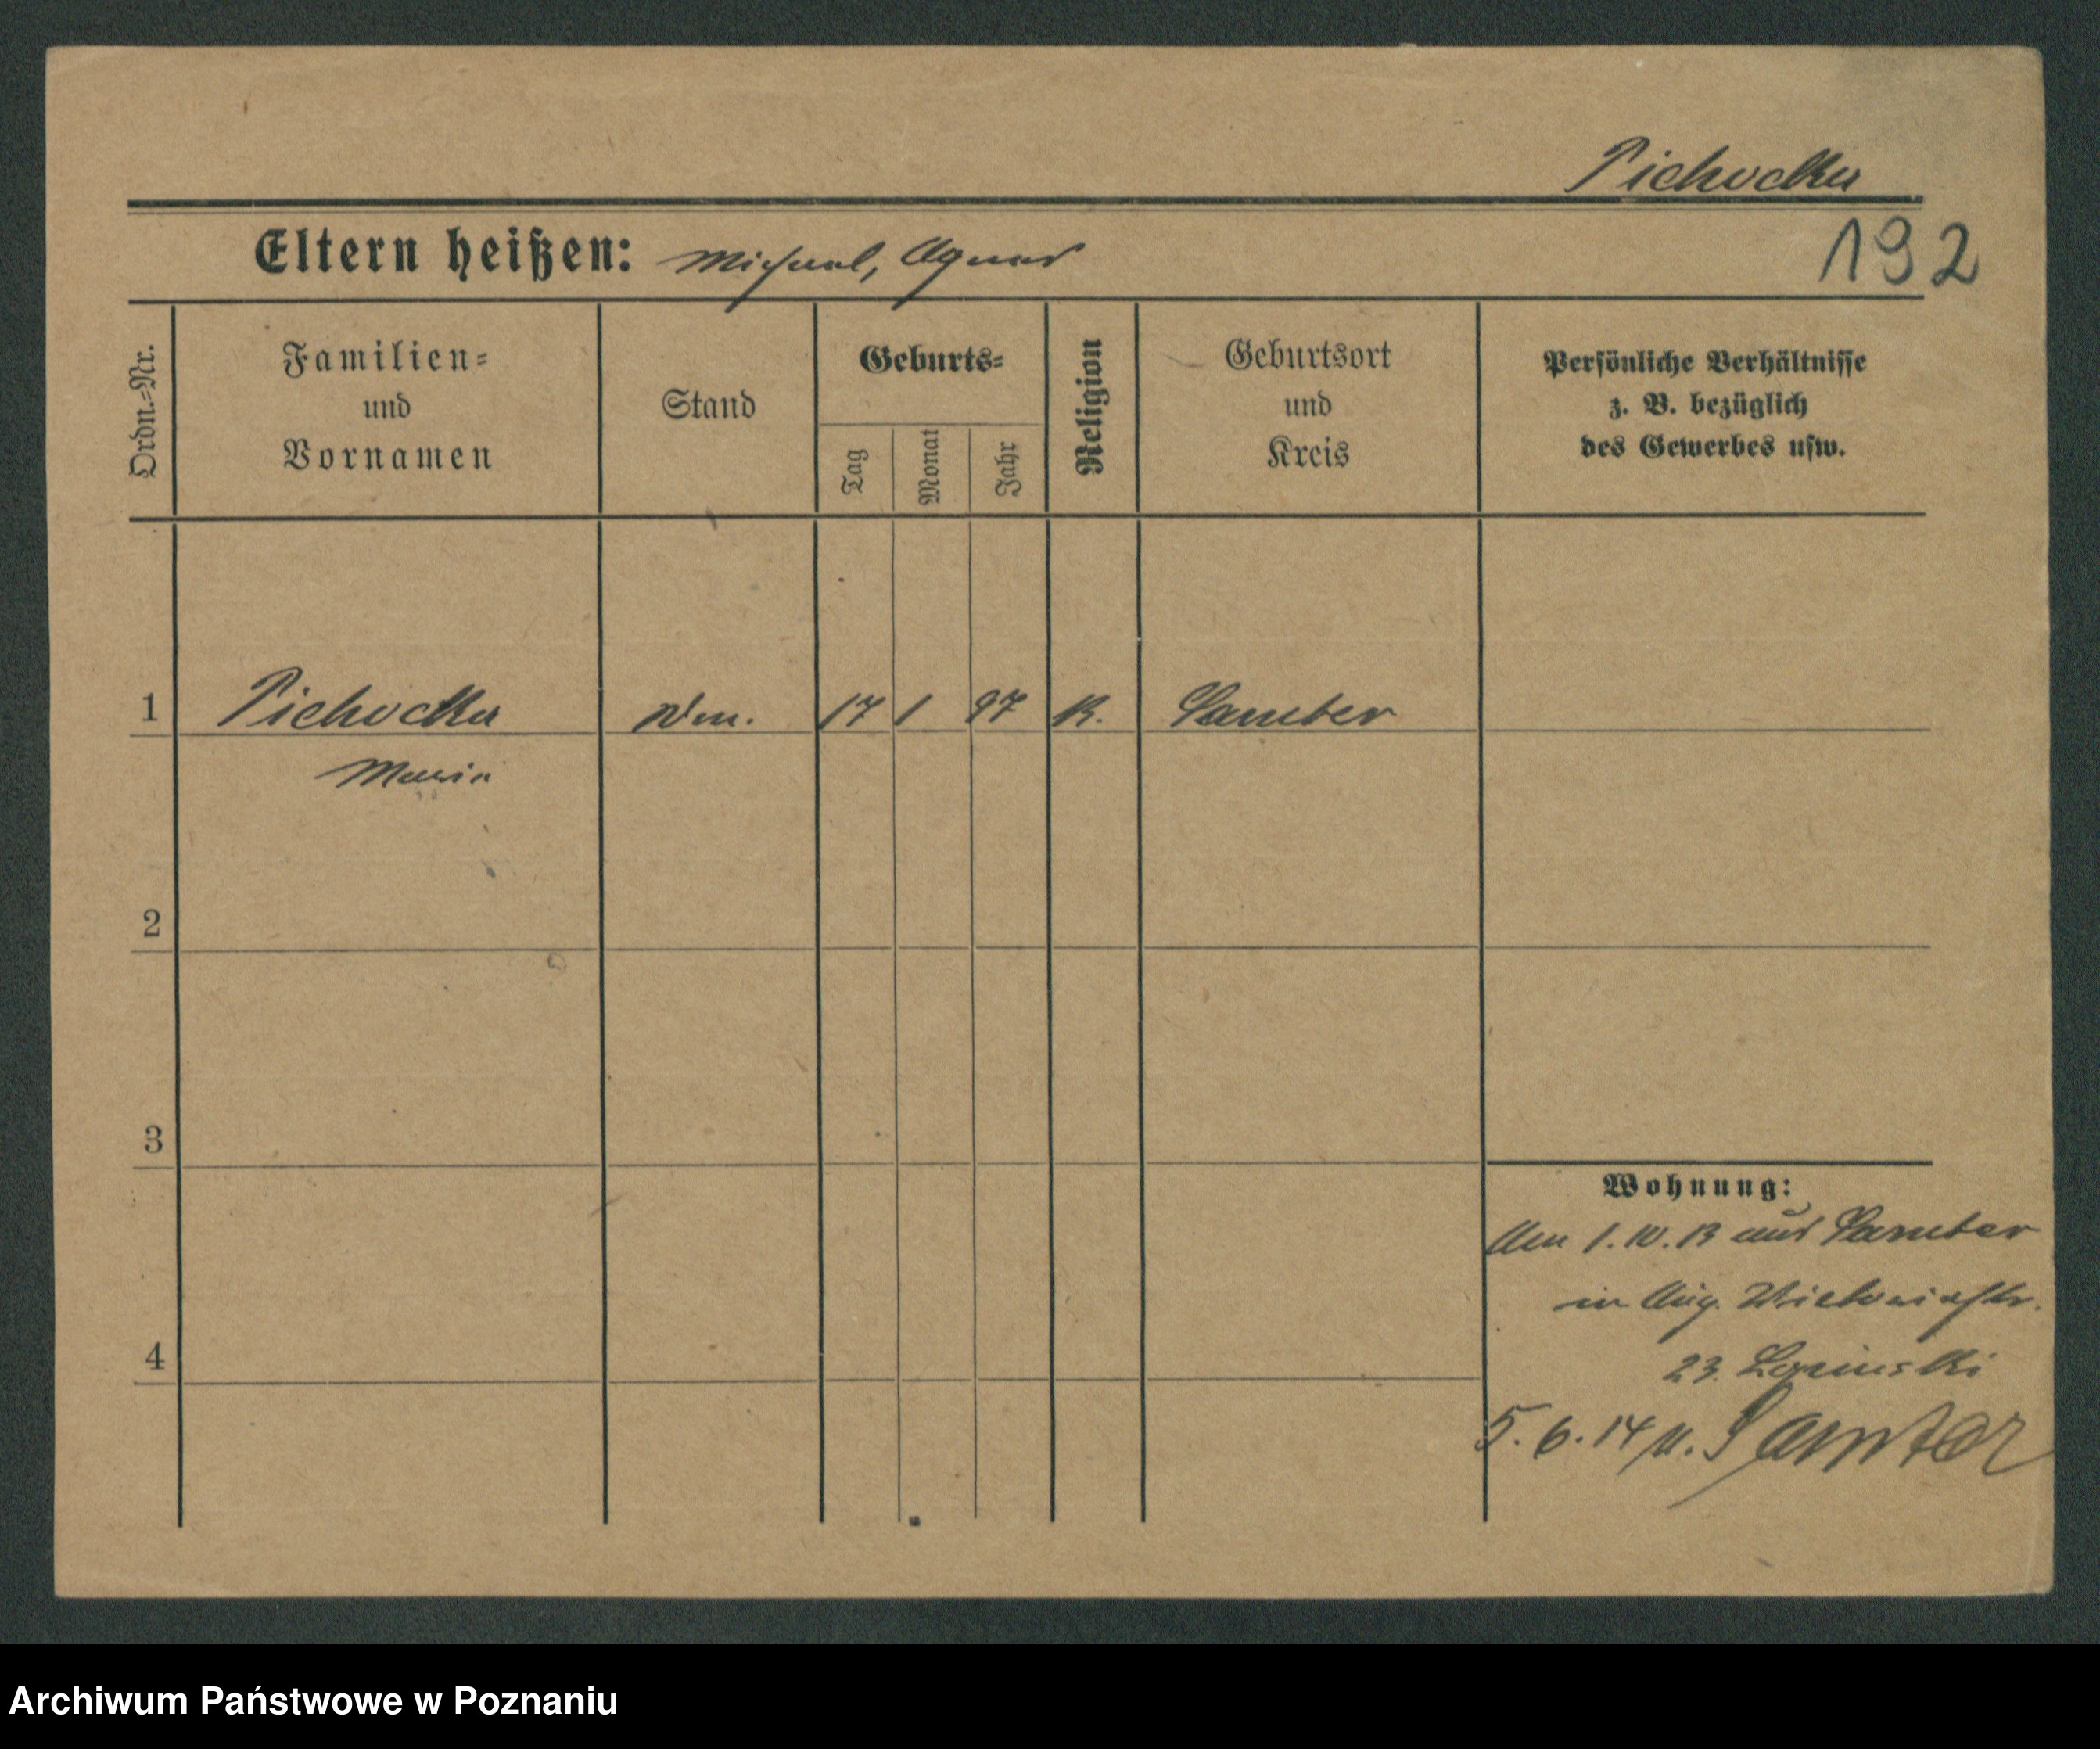 Pichocka
Eltern heißen: Michael, Agnes
192
Ordn.-Nr.
Familien-
und
Vornamen
Stand
Geburts-
Tag
Monat
Jahr
Religion
Geburtsort
und
Kreis
Persönliche Verhältnisse
z. B. bezüglich
des Gewerbes usw.
1 Pichocka 17 1 97 K. Samter
Maria
2
3
4
Wohnung:
Am 1.10.13 aus Samter
in Aug. Victoriastr.
23.
5.6.14 n. Samter
Archiwum Państwowe w Poznaniu